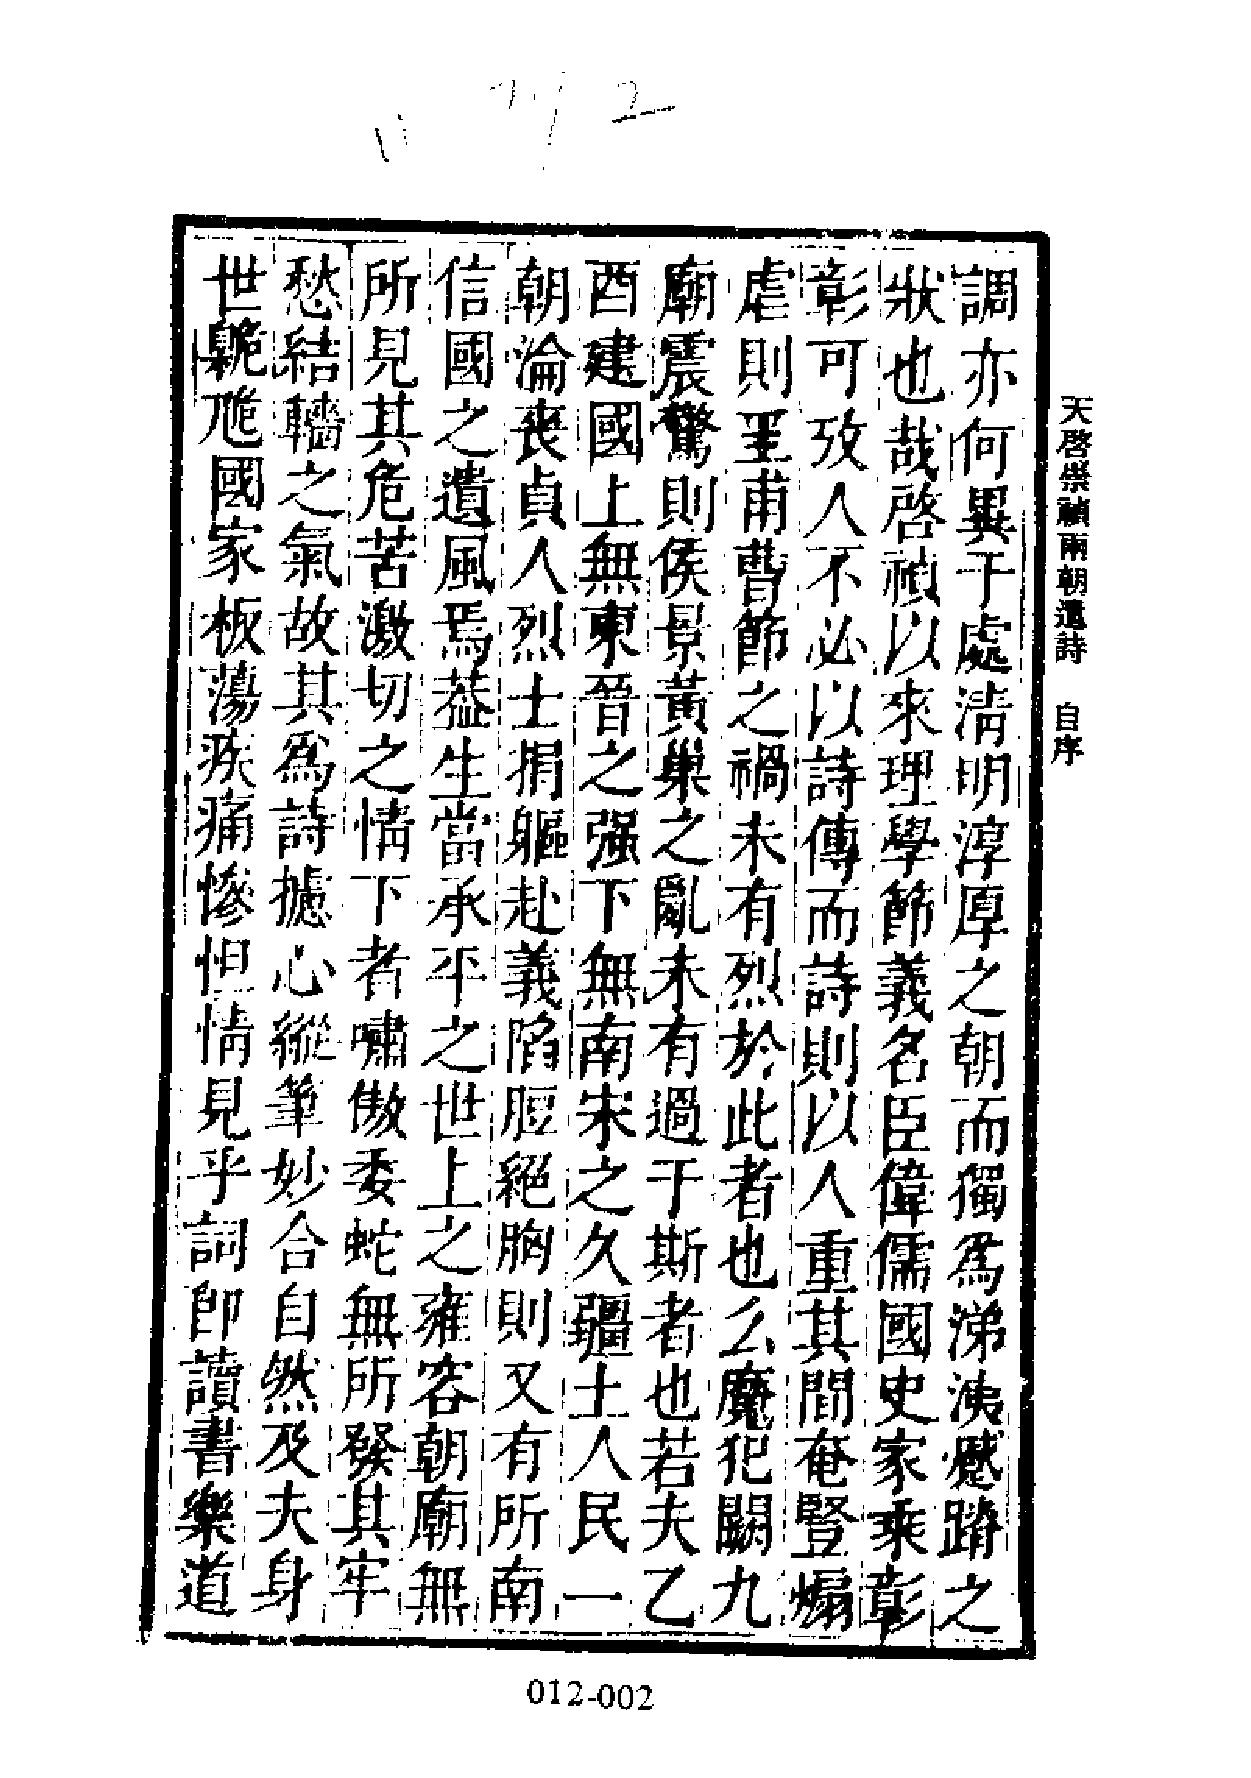 天啓崇禎兩朝遺詩 自序
調亦何異于處清明淳厚之朝而獨爲涕洟蹙蹐之
狀也哉啓禎以來理學節義名臣偉儒國史家乘彰
彰可攷人不必以詩傳而詩則以人重其間奄豎煽
虐則王甫曹節之禍未有烈於此者也么魔犯闕九
廟震驚則侯景黃巢之亂未有過于斯者也若夫乙
酉建國上無東晉之强下無南宋之久疆土人民一
朝淪喪貞人烈士捐軀赴義陷脰絕胸則又有所南
信國之遺風焉葢生當承平之世上之雍容朝廟無
所見其危苦激切之情下者嘯傲委蛇無所發其牢
愁結轖之氣故其爲詩攄心縱筆妙合自然及夫身
世臲卼國家板蕩疾痛慘怛情見乎詞卽讀書樂道
012-002